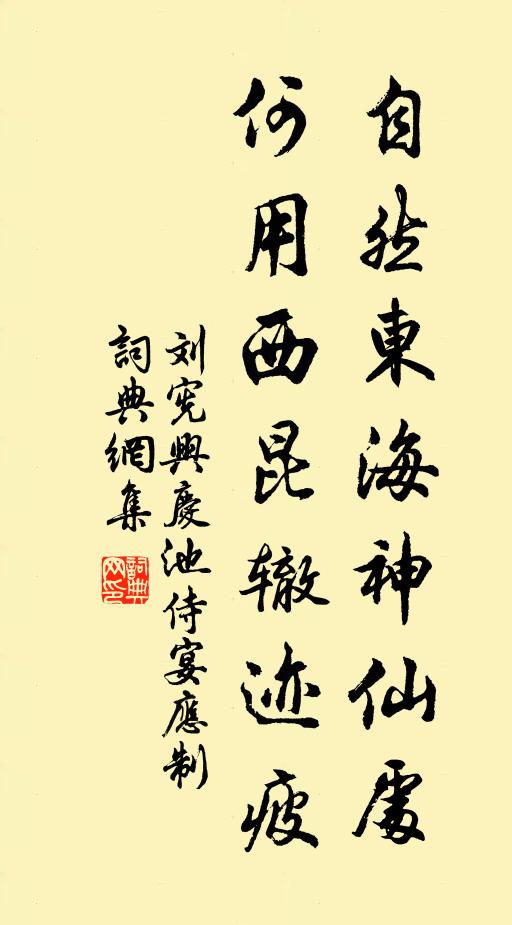 自然東海神仙處
何用西昆辙迹疲
刘宪興慶池侍宴應制
詞典網集
詞典网印